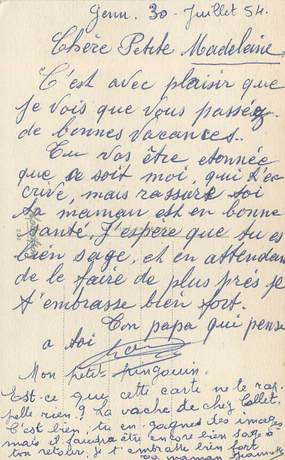 Genn. 30 - Juillet 54.
Chère Petite Madeleine
C'est avec plaisir que
je vois que vous passez
de bonnes vacances.
Tu vas être etonnée
que se soit moi, qui t'é
crive, mais rassure toi
ta maman est en bonne
santé, J'espère que tu es
bien sage, et en attendan
de le faire de plus prés je
t'embrasse bien fort.
Ton papa qui pense
a toi
Mon petit pingouin.
Est-ce que cette carte ne te rap-
pelle rien ? la vache de chez Collet.
C'est bien, tu en gagnes des images
mais il faudra être encore bien sage à
ton retour. Je t'embrasse bien fort
ta maman